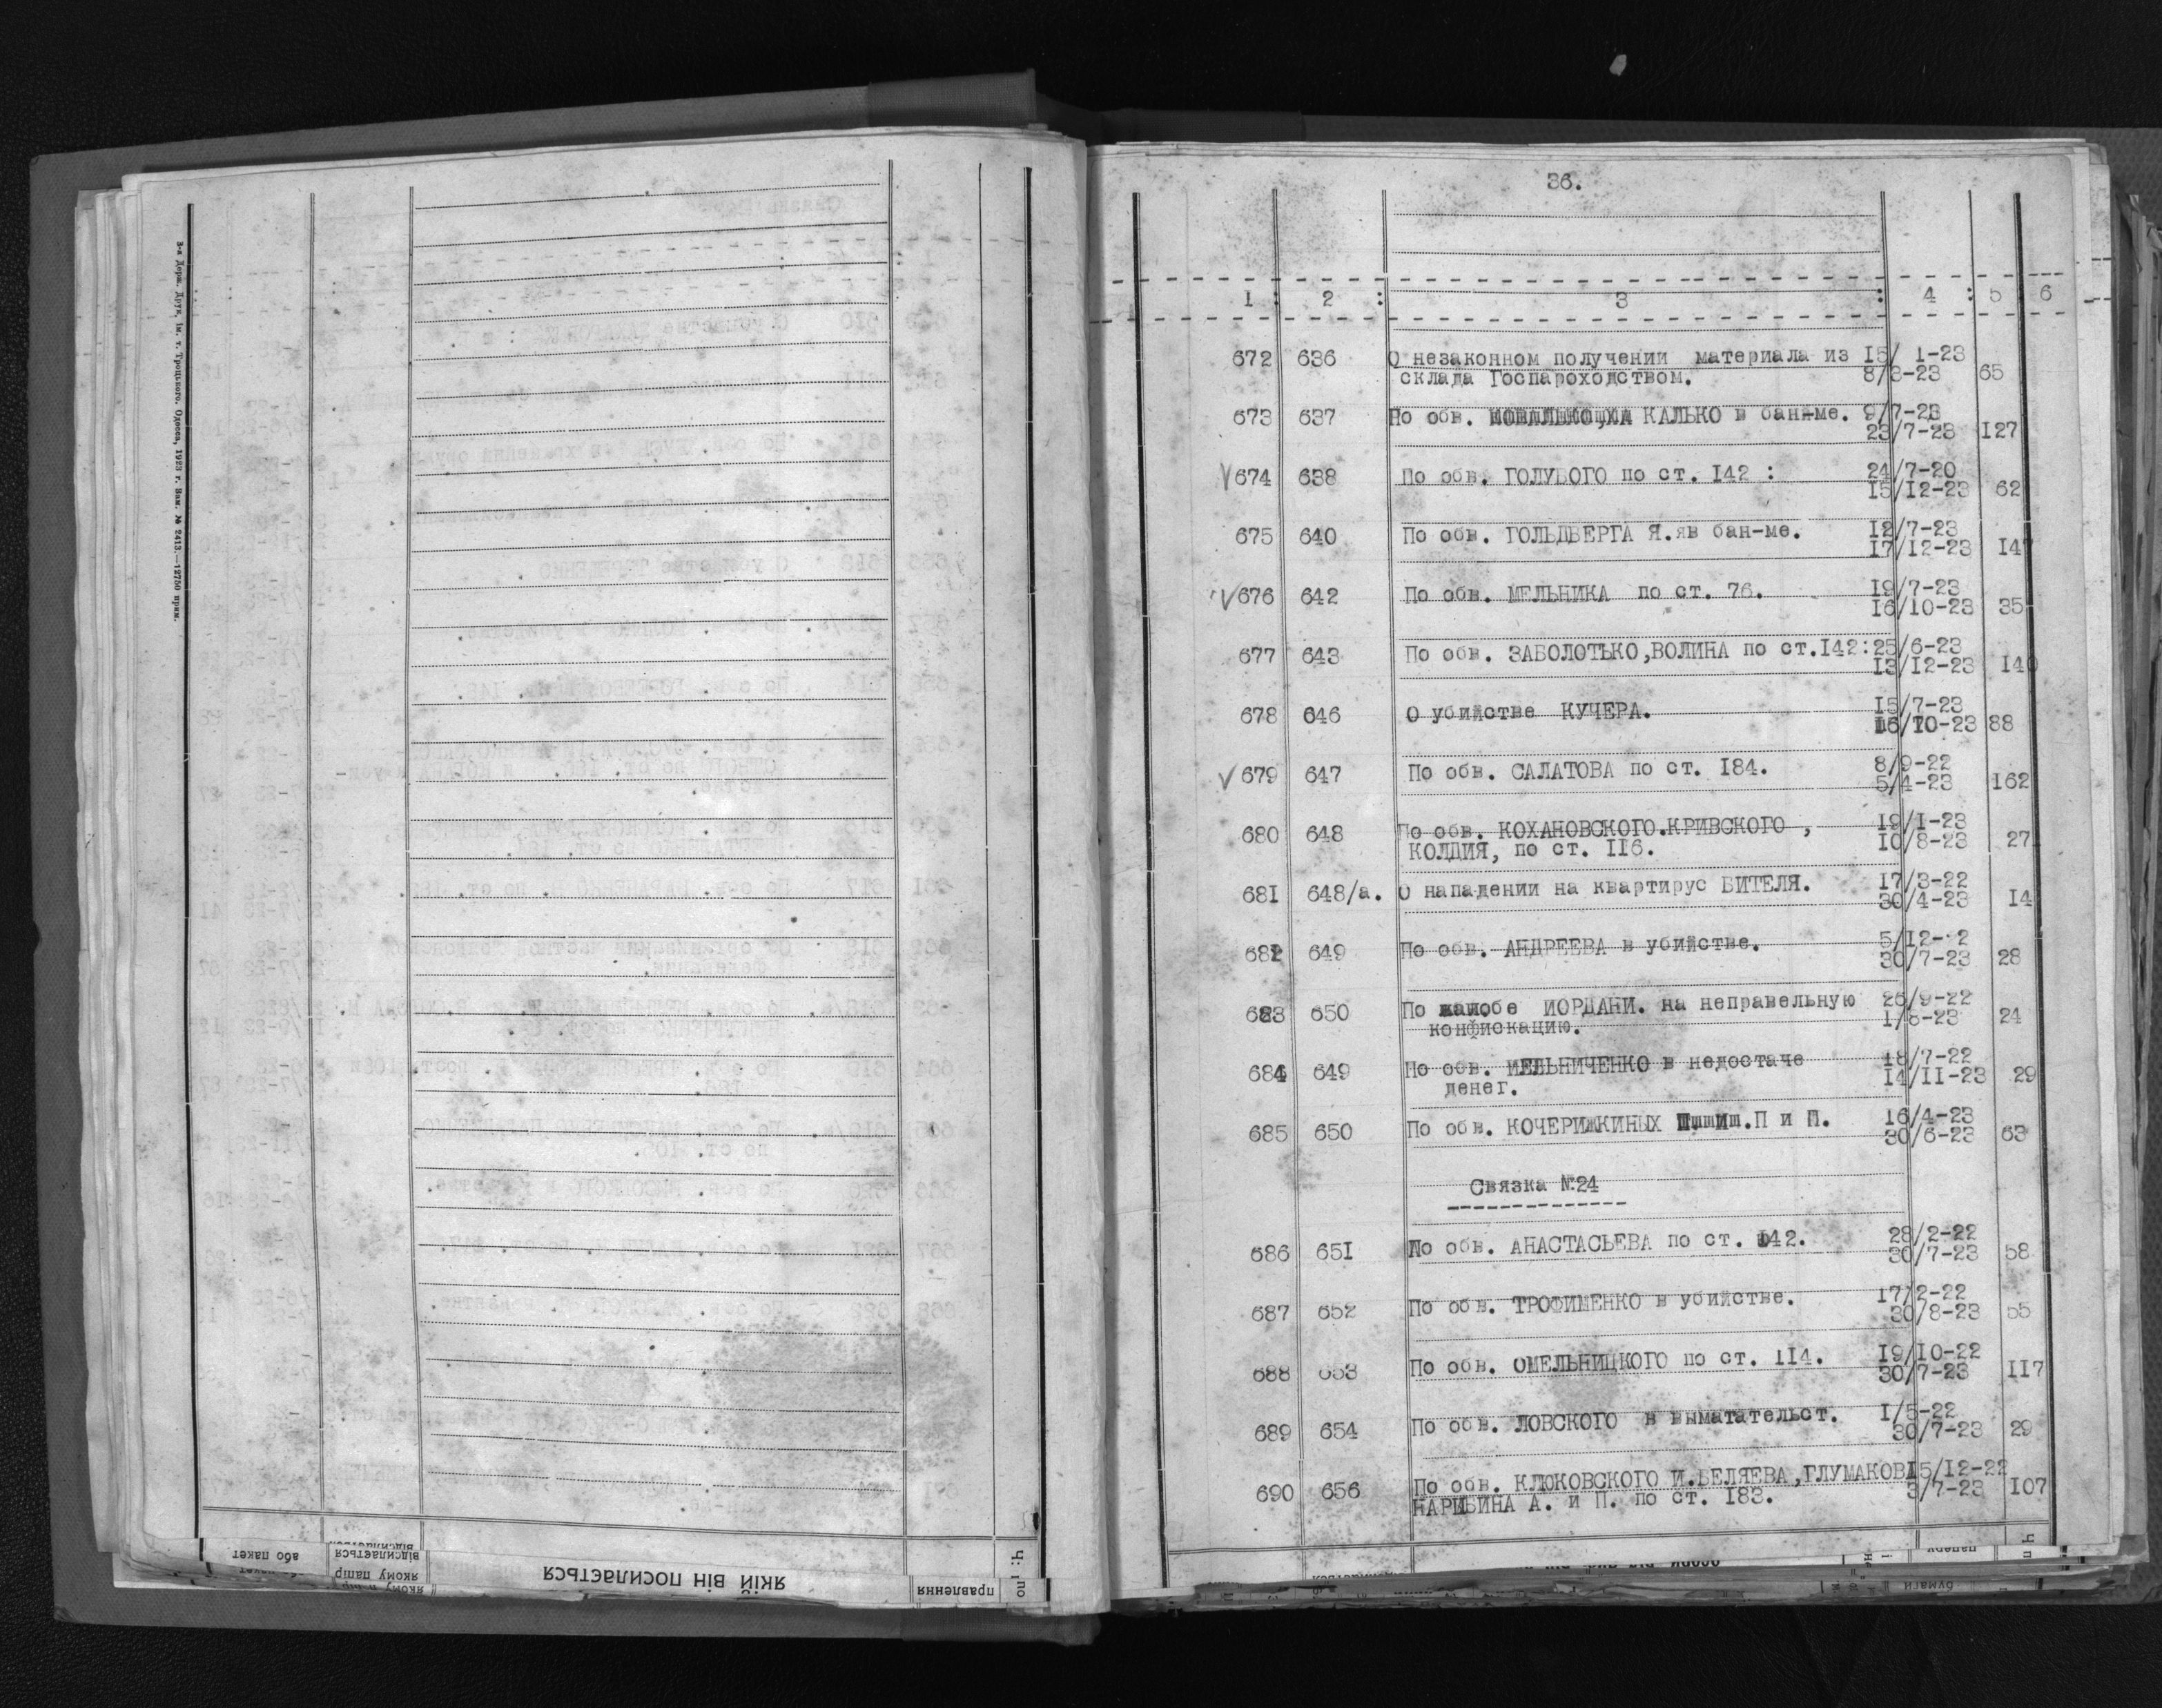 3-я Держ. Друк. ім. т. Троцького. Одесса, 1923 г. Зам. № 2413.—12750 прим.
або пакет
відсилається
якому папір
якій він посилається
правлення
по
36.
1 : 2 : 3 : 4 : 5 6
672 636 О незаконном получении материала из 15/ 1-23
склада Госпароходством. 8/3-23 65
673 637 По обв. КАЛЬКО в бан-ме. 9/7-23
23/7-23 127
674 638 По обв. ГОЛУБОГО по ст. 142 : 24/7-20
15/12-23 62
675 640 По обв. ГОЛЬДБЕРГА Я.яв бан-ме. 12/7-23
17/12-23 147
676 642 По обв. МЕЛЬНИКА по ст. 76. 19/7-23
16/10-23 35
677 643 По обв. ЗАБОЛОТЬКО,ВОЛИНА по ст.142:25/6-23
13/12-23 140
678 646 О убийстве КУЧЕРА. 15/7-23
16/10-23 88
679 647 По обв. САЛАТОВА по ст. 184. 8/9-22
5/4-23 162
680 648 По обв. КОХАНОВСКОГО.КРИВСКОГО , 19/1-23
КОЛДИЯ, по ст. 116. 10/8-23 27
681 648/а. О нападении на квартирус ВИТЕЛЯ. 17/3-22
30/4-23 14
682 649 По обв. АНДРЕЕВА в убийстве. 5/12- 2
30/7-23 28
683 650 По жалобе ИОРДАНИ. на неправельную 26/9-22
конфискацию. 1/8-23 24
684 649 По обв. МЕЛЬНИЧЕНКО в недостаче 18/7-22
денег. 14/11-23 29
685 650 По обв. КОЧЕРИЖКИНЫХ П и П. 16/4-23
30/6-23 63
Связка №24
686 651 По обв. АНАСТАСЬЕВА по ст. 142. 28/2-22
30/7-23 58
687 652 По обв. ТРОФИМЕНКО в убийстве. 17/2-22
30/8-23 55
688 653 По обв. ОМЕЛЬНИЦКОГО по ст. 114. 19/10-22
30/7-23 117
689 654 По обв. ЛОВСКОГО в выматательст. 1/5-22
30/7-23 29
690 656 По обв. КЛЮКОВСКОГО И.БЕЛЯЕВА,ГЛУМАКОВ 15/12-22
НАРИБИНА А. и П. по ст. 183. 3/7-23 107
бумаги